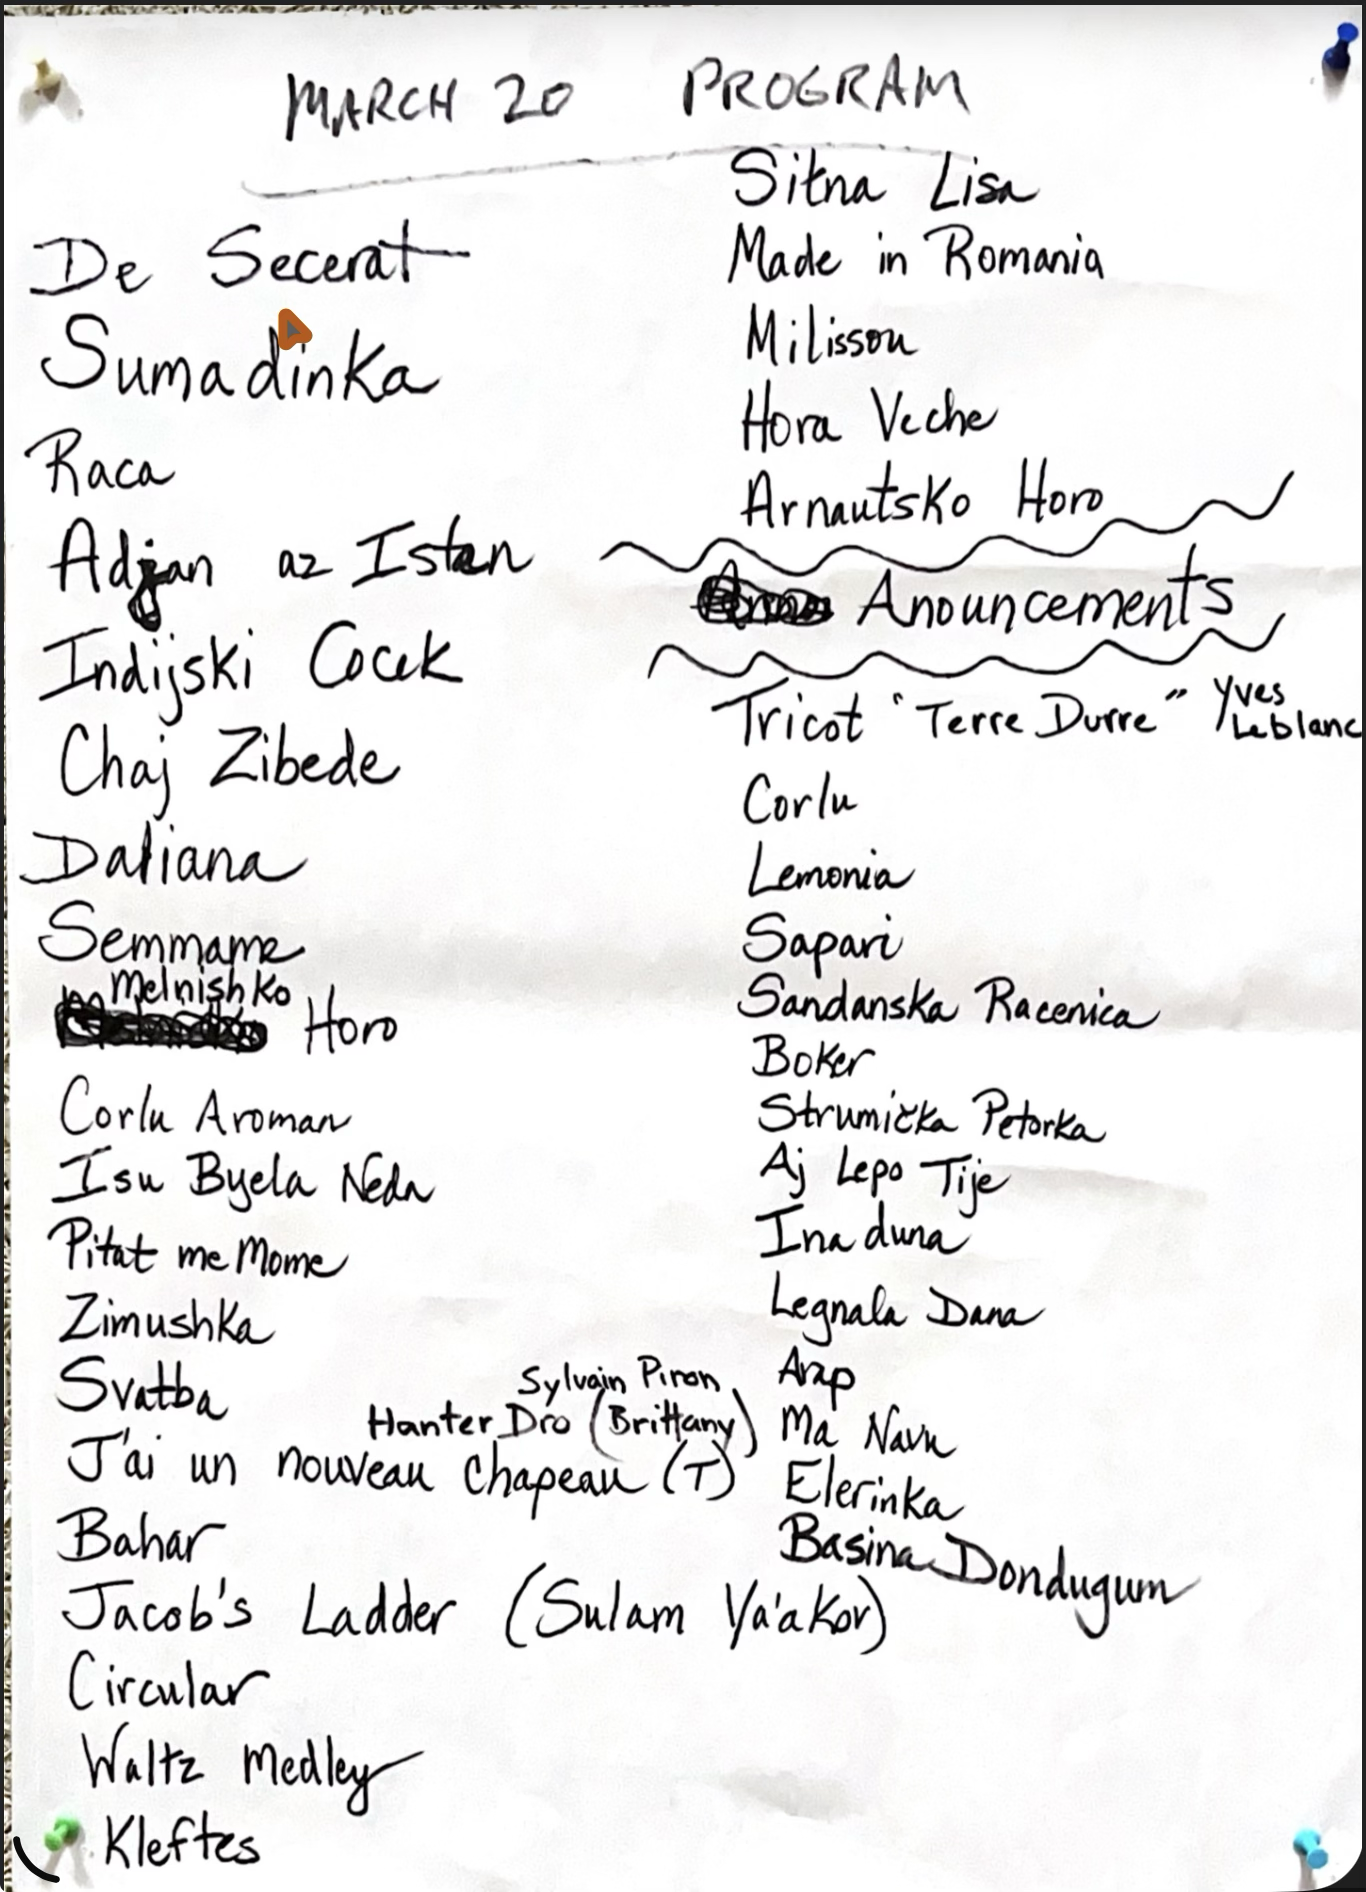 MARCH 20 PROGRAM
De Secerat
Sumadinka
Raca
Adjan az Isten
Indijski Cocek
Chaj Zibede
Daliana
Semmame
Melnishko
Horo
Corlu Aroman
Isu Byela Neda
Pitat me Mome
Zimushka
Svatba
Sylvain Piron
Hanter Dro (Brittany)
J'ai un nouveau chapeau (T)
Bahar
Jacob's Ladder (Sulam Ya'akov)
Circular
Waltz Medley
Kleftes
Sitna Lisa
Made in Romania
Milisson
Hora Veche
Arnautsko Horo
Anouncements
Tricot "Terre Durre" Yves
Leblanc
Corlu
Lemonia
Sapari
Sandanska Racenica
Boker
Strumička Petorka
Aj Lepo Tije
Ina duna
Legnala Dana
Arap
Ma Navu
Elerinka
Basina Dondugum